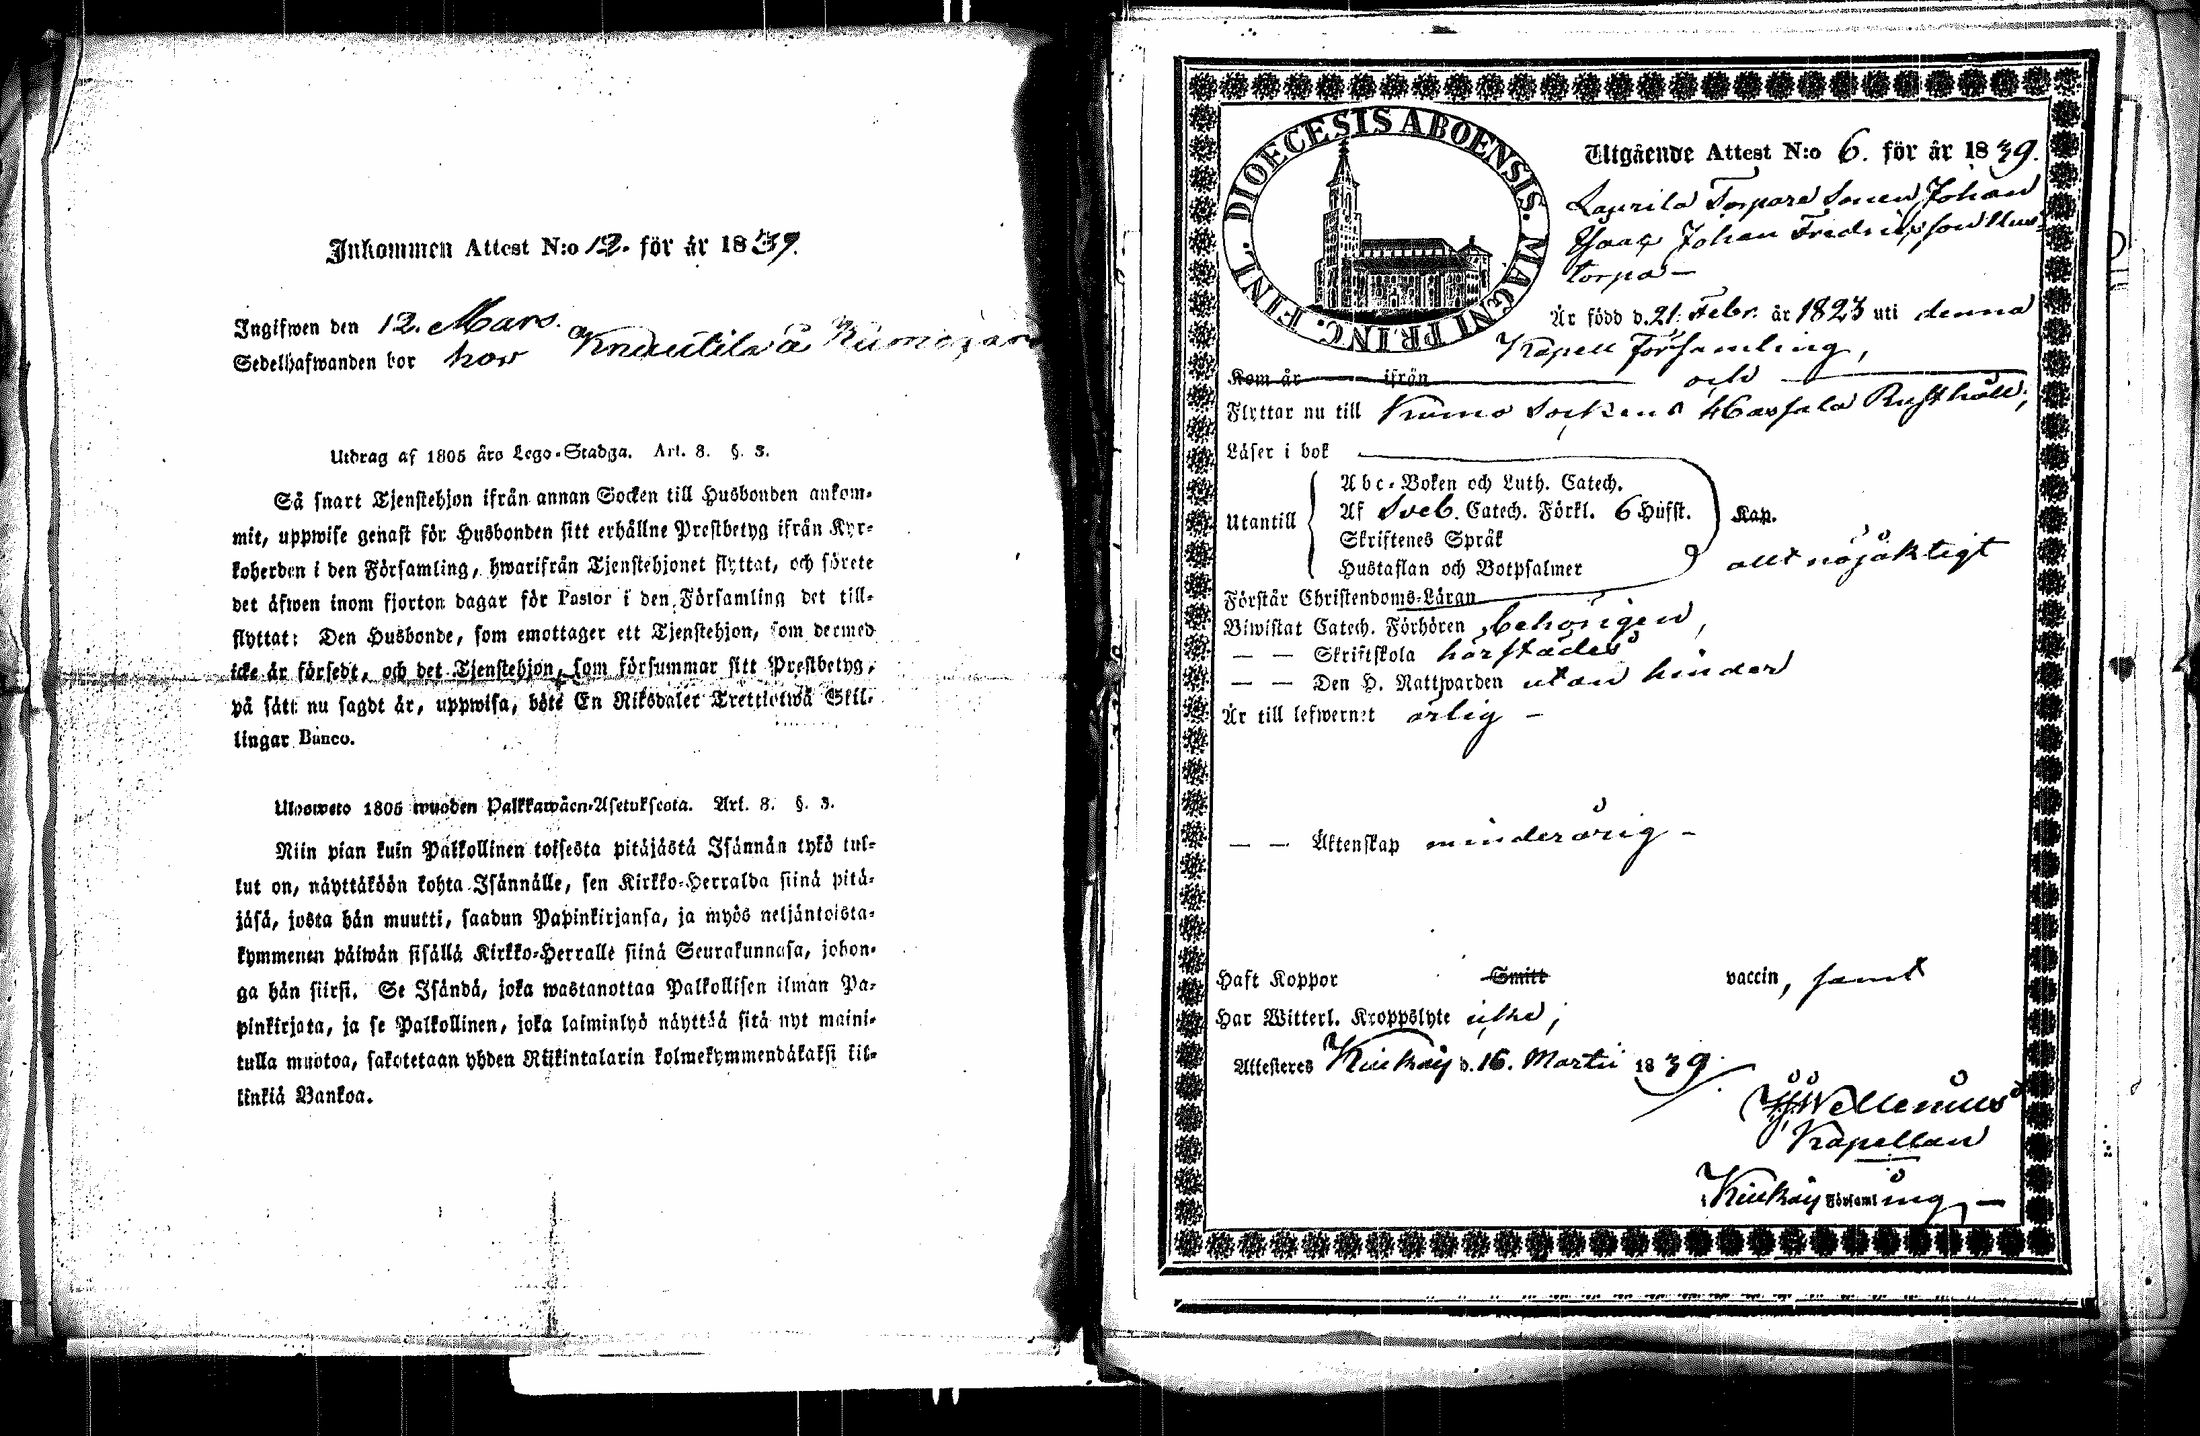 Inkommen Attest N:o 12. för år 1839.
Ingifwen den 12. Mars.
Sedelhafwanden bor hos Knuutila å
Utdrag af 1805 års Lego-Stadga. Art. 8. §. 3.
Så snart Tjenstehjon ifrån annan Socken till Husbonden ankom-
mit, uppwise genast för Husbonden sitt erhållne Prestbetyg ifrån Kyr-
koherden i den Församling, hwarifrån Tjenstehjonet flyttat, och förete
det äfwen inom fjorton dagar för Pastor i den Församling det till-
flyttat: Den Husbonde, som emottager ett Tjenstehjon, som dermed
icke är försedt, och det Tjenstehjon, som försummar sitt Prestbetyg,
på sätt nu sagdt är, uppwisa, böte En Riksdaler Trettiotwå Skil-
lingar Banco.
Ulosweto 1805 wuoden Palkkawäen-Asetuksesta. Art. 8. §. 3.
Niin pian kuin Palkollinen toisesta pitäjästä Isännän tykö tul-
lut on, näyttäköön kohta Isännälle, sen Kirkko-Herralda siinä pitä-
jäsä, josta hän muutti, saadun Papinkirjansa, ja myös neljäntoista-
kymmenen päiwän sisällä Kirkko-Herralle siinä Seurakunnasa, johon-
ga hän siirsi. Se Isändä, joka wastanottaa Palkollisen ilman Pa-
pinkirjata, ja se Palkollinen, joka laiminlyö näyttää sitä nyt maini-
tulla muotoa, sakotetaan yhden Riikintalarin kolmekymmendäkaksi kil-
linkiä Bankoa.
DIOECESIS ABOENSIS. MAGNI PRINC. FINL.
Utgående Attest N:o 6. för år 1839.
Laurila Torpare Sonen Johan
Isaac Johan Fredricsson
torpa –
Är född d. 21. Febr. år 1823 uti denna
Kapell Församling,
Kom år ifrån och
Flyttar nu till Kumo Sockens Rusthåll;
Läser i bok
Abc-Boken och Luth. Catech.
Utantill Af Sveb. Catech. Förkl. 6 Hufst. Kap.
Skriftenes Språk
Hustaflan och Botpsalmer allt nöjaktigt
Förstår Christendoms-Läran
Biwistat Catech. Förhören behörigen,
— — Skriftskola härstädes
— — Den H. Nattwarden utan hinder
Är till lefwernet ärlig –
— — Äktenskap minderårig –
Haft Koppor Smitt vaccin, samt
Har Witterl. Kroppslyte icke;
Attesteres Kiukais d. 16. Martii 1839.
Wellenius
Kapellan
i Kiukais Församling –